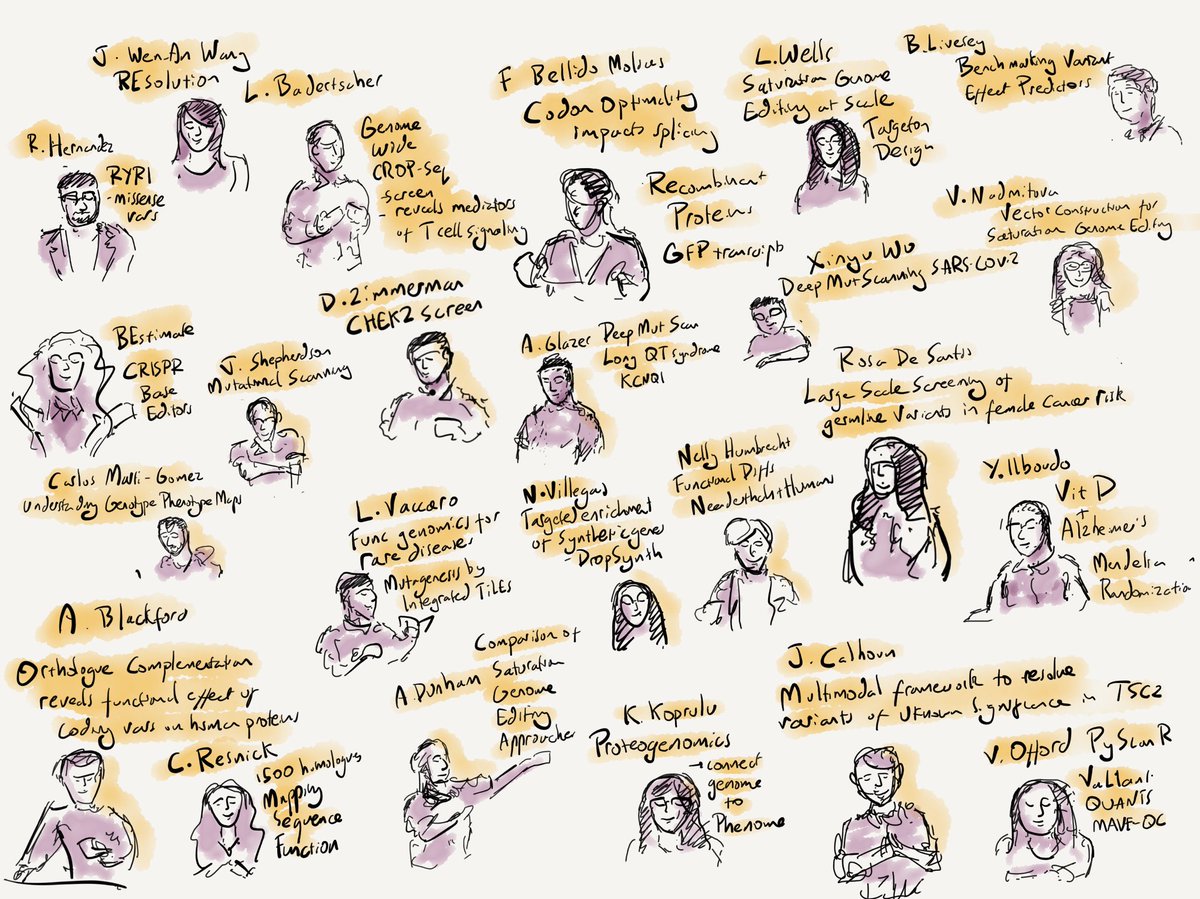 J. Wen-An Wang
REsolution
L. Badertscher
Genome
Wide
CROP-seq
-screen
- reveals mediators
of T cell signaling
R. Hernandez
RYR1
-missense
vars
F Bellido Molias
Codon Optimality
impacts splicing
Recombinant
Proteins
GFP transcripts
L. Wells
Saturation Genome
Editing at Scale
Targeton
Design
B. Livesey
Benchmarking Variant
Effect Predictors
V. Nadmitova
Vector Construction for
Saturation Genome Editing
Xinyu Wu
Deep Mut Scanning SARS-COV-2
D. Zimmerman
CHEK2 Screen
BEstimate
CRISPR
Base
Editors
J. Shepherdson
Mutational Scanning
A. Glazer Deep Mut Scan
Long QT syndrome
KCNQ1
Rosa De Santis
Large Scale Screening of
germline variants in female cancer risk
Carlos Marti-Gomez
Understanding Genotype Phenotype Maps
L. Vaccaro
Func genomics for
rare diseases
Mutagenesis by
Integrated TiLEs
N. Villegas
Targeted enrichment
of Synthetic genes
- DropSynth
Nelly Humbrecht
Functional Diffs
Neanderthals + Humans
Y. Ilboudo
Vit D
+
Alzheimer's
Mendelian
Randomization
A. Blackford
Orthologue Complementation
reveals functional effect of
coding vars on human proteins
C. Resnick
1500 homologus
Mapping
Sequence
Function
A. Dunham
Comparison of
Saturation
Genome
Editing
Approaches
K. Koprulu
Proteogenomics
→ connect
genome
to
Phenome
J. Calhoun
Multimodal framework to resolve
variants of Uknown Significance in TSC2
V. Offord PyScanR
VaLiAnT
QUANTS
MAVE-QC